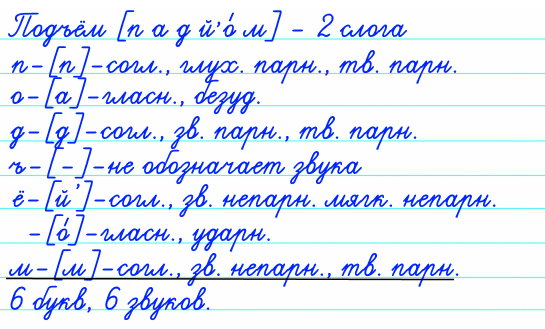 Подъём [п а д й’ о́ м] – 2 слога
п – [п] – согл., глух. парн., тв. парн.
о – [а] – гласн., безуд.
д – [д] – согл., зв. парн., тв. парн.
ъ – [ – ] – не обозначает звука
ё – [й’] – согл., зв. непарн. мягк. непарн.
– [о́] – гласн., ударн.
м – [м] – согл., зв. непарн., тв. парн.
6 букв, 6 звуков.